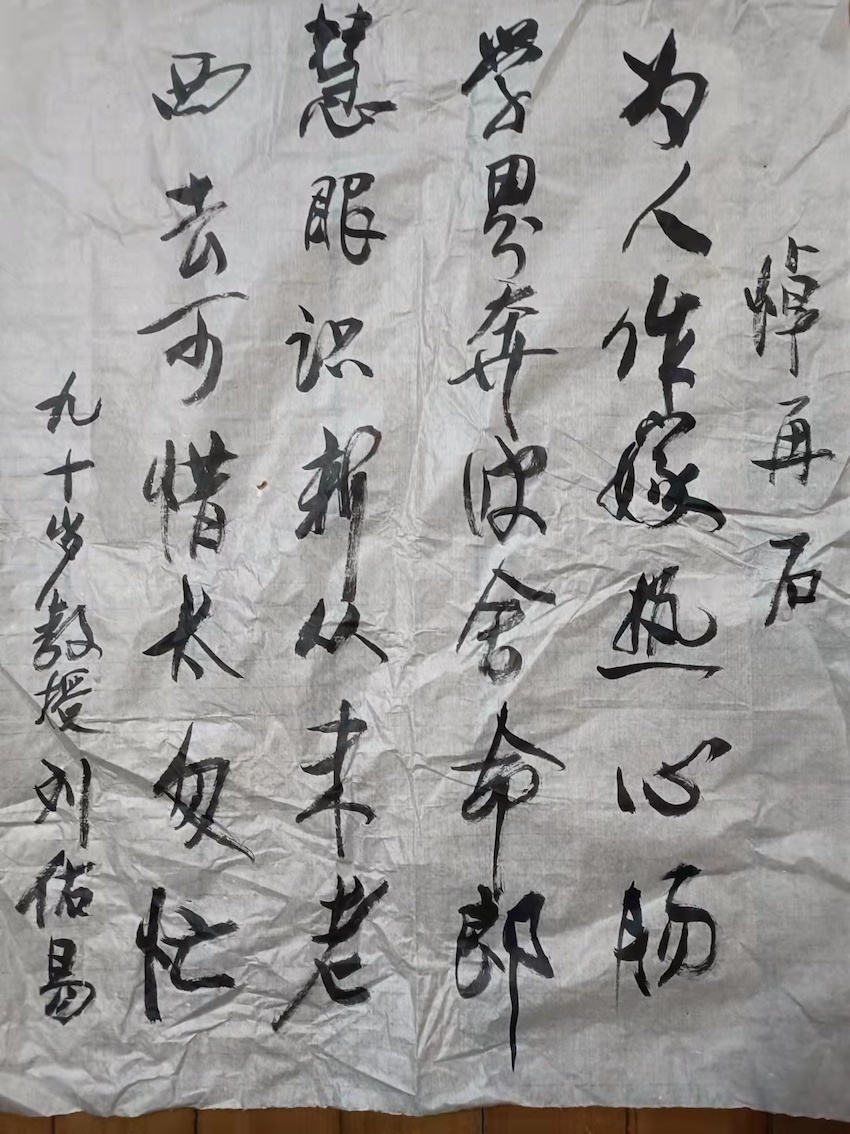 悼再石
为人作嫁热心肠
学界奔波舍命郎
慧眼识新从未老
西去可惜太匆忙
九十岁教授刘佑易